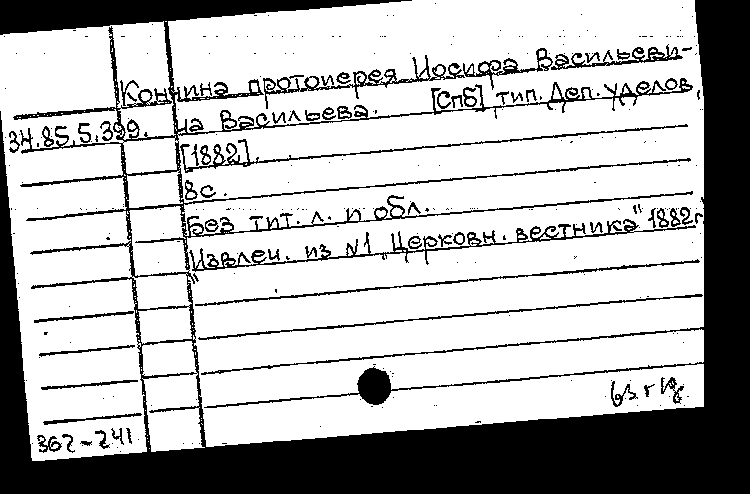 Кончина протоиерея Иосифа Васильеви-
34.85.5.399. ча Васильева. [Спб] тип. Деп. уделов,
[1882].
8с.
Без тит. л. и обл.
"Извлеч. из №1 „Церковн. вестника" 1882г."
362-241